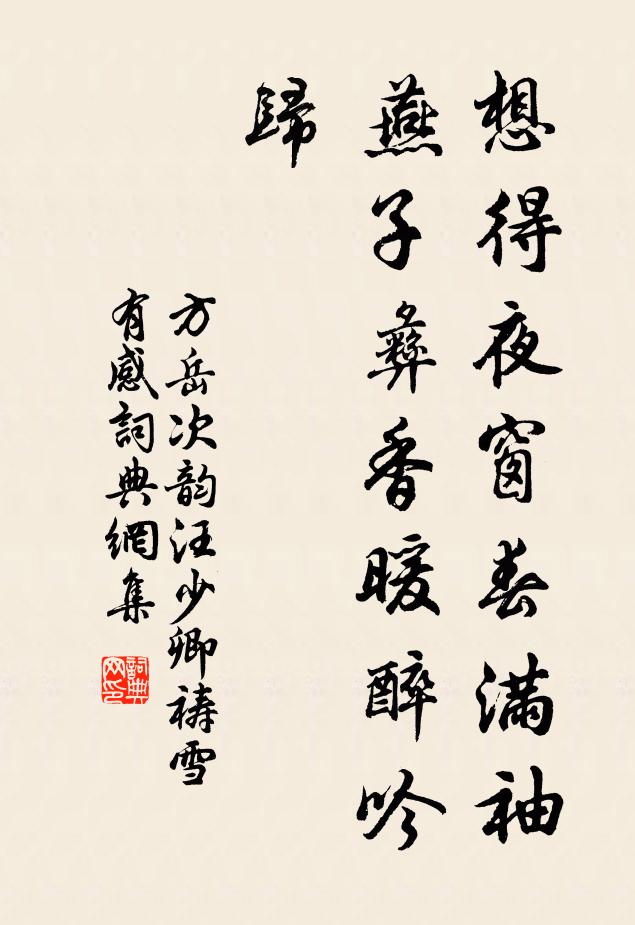 想得夜窗春滿袖
燕子彝香暖醉吟
歸
方岳次韵汪少卿禱雪
有感詞典網集
詞典
网印